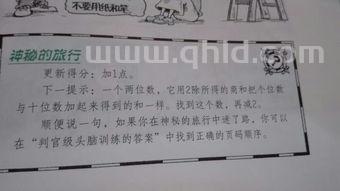 不要用纸和笔
www.qhld.com
神秘的旅行
更新得分：加1点。
下一提示：一个两位数，它用2除所得的商和把个位数
与十位数加起来得到的和一样。找到这个数，再减2。
顺便说一句，如果你在神秘的旅行中迷了路，你可以
在“判官级头脑训练的答案”中找到正确的页码顺序。